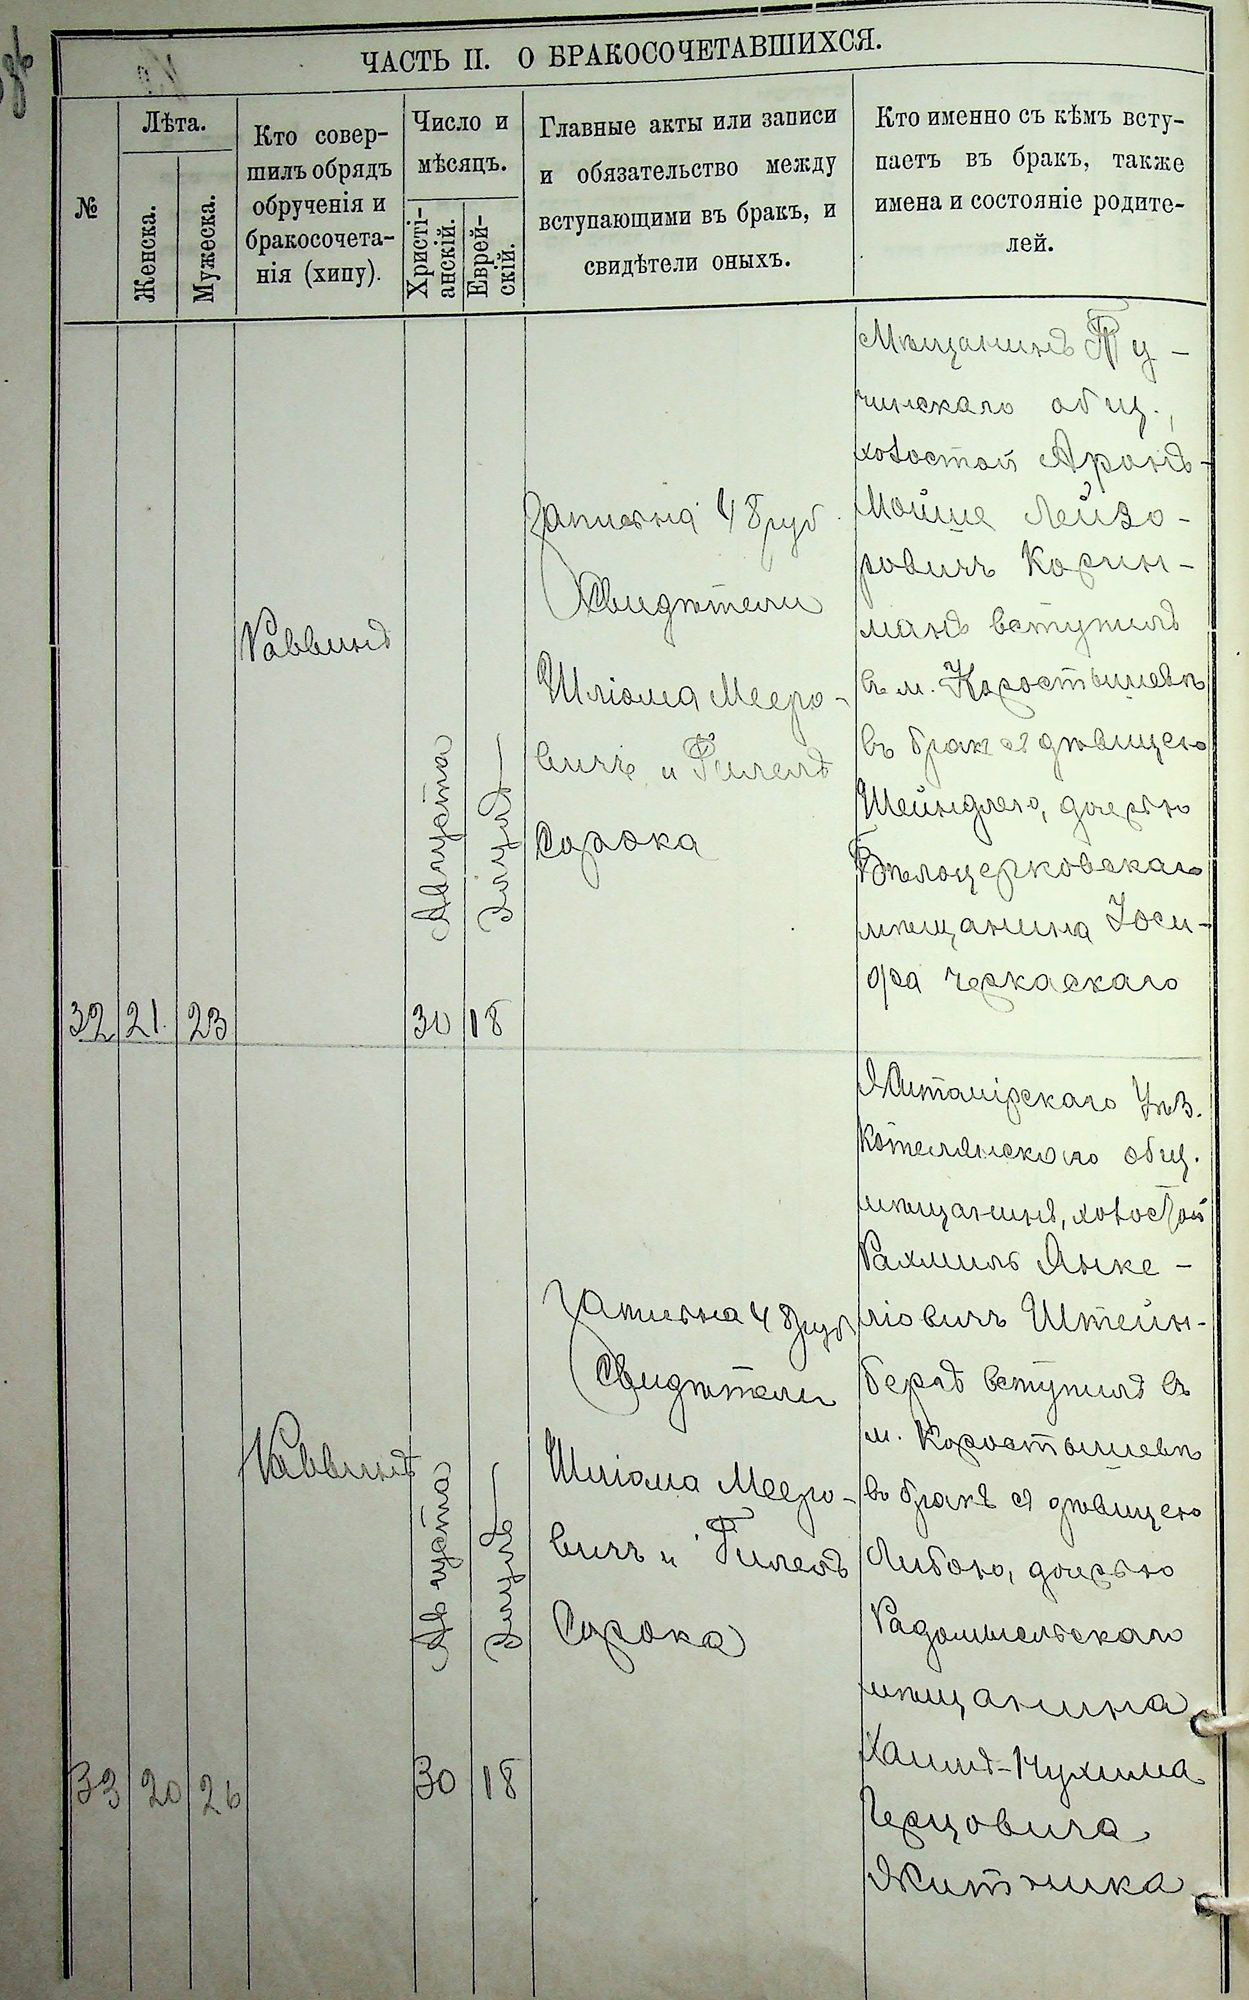 ЧАСТЬ II. О БРАКОСОЧЕТАВШИХСЯ.
№
Лѣта.
Женска.
Мужеска.
Кто совер-
шилъ обрядъ
обрученія и
бракосочета-
нія (хипу).
Число и
мѣсяцъ.
Христі-
анскій.
Еврей-
скій.
Главные акты или записи
и обязательство между
вступающими въ бракъ, и
свидѣтели оныхъ.
Кто именно съ кѣмъ всту-
паетъ въ бракъ, также
имена и состояніе родите-
лей.
32
21.
23
Раввинъ
Августа
30
Элулъ
18
Записка 48 руб.
Свидѣтели
Шліома Мееро-
вичъ и Гилелъ
Сорока
Мѣщанинъ Ту-
чинскаго общ.,
холостой Аронъ-
Мойше Лейзо-
ровичъ Корин-
манъ вступилъ
въ м. Коростышевѣ
въ бракъ съ дѣвицею
Шейндлею, дочерью
Бѣлоцерковскаго
мѣщанина Іоси-
фа Черкаскаго
33
20
26
Раввинъ
Августа
30
Элулъ
18
Записка 48 руб
Свидѣтели
Шліома Мееро-
вичъ и Гилелъ
Сорока
Житомірскаго Уѣз.
Котелянскаго общ.
мѣщанинъ, холостой
Рахмиль Янке-
ліовичъ Штейн-
бергъ вступилъ въ
м. Коростышевѣ
въ бракъ съ дѣвицею
Либою, дочерью
Радомысльскаго
мѣщанина
Хаимъ-Нухима
Герцовича
Житника